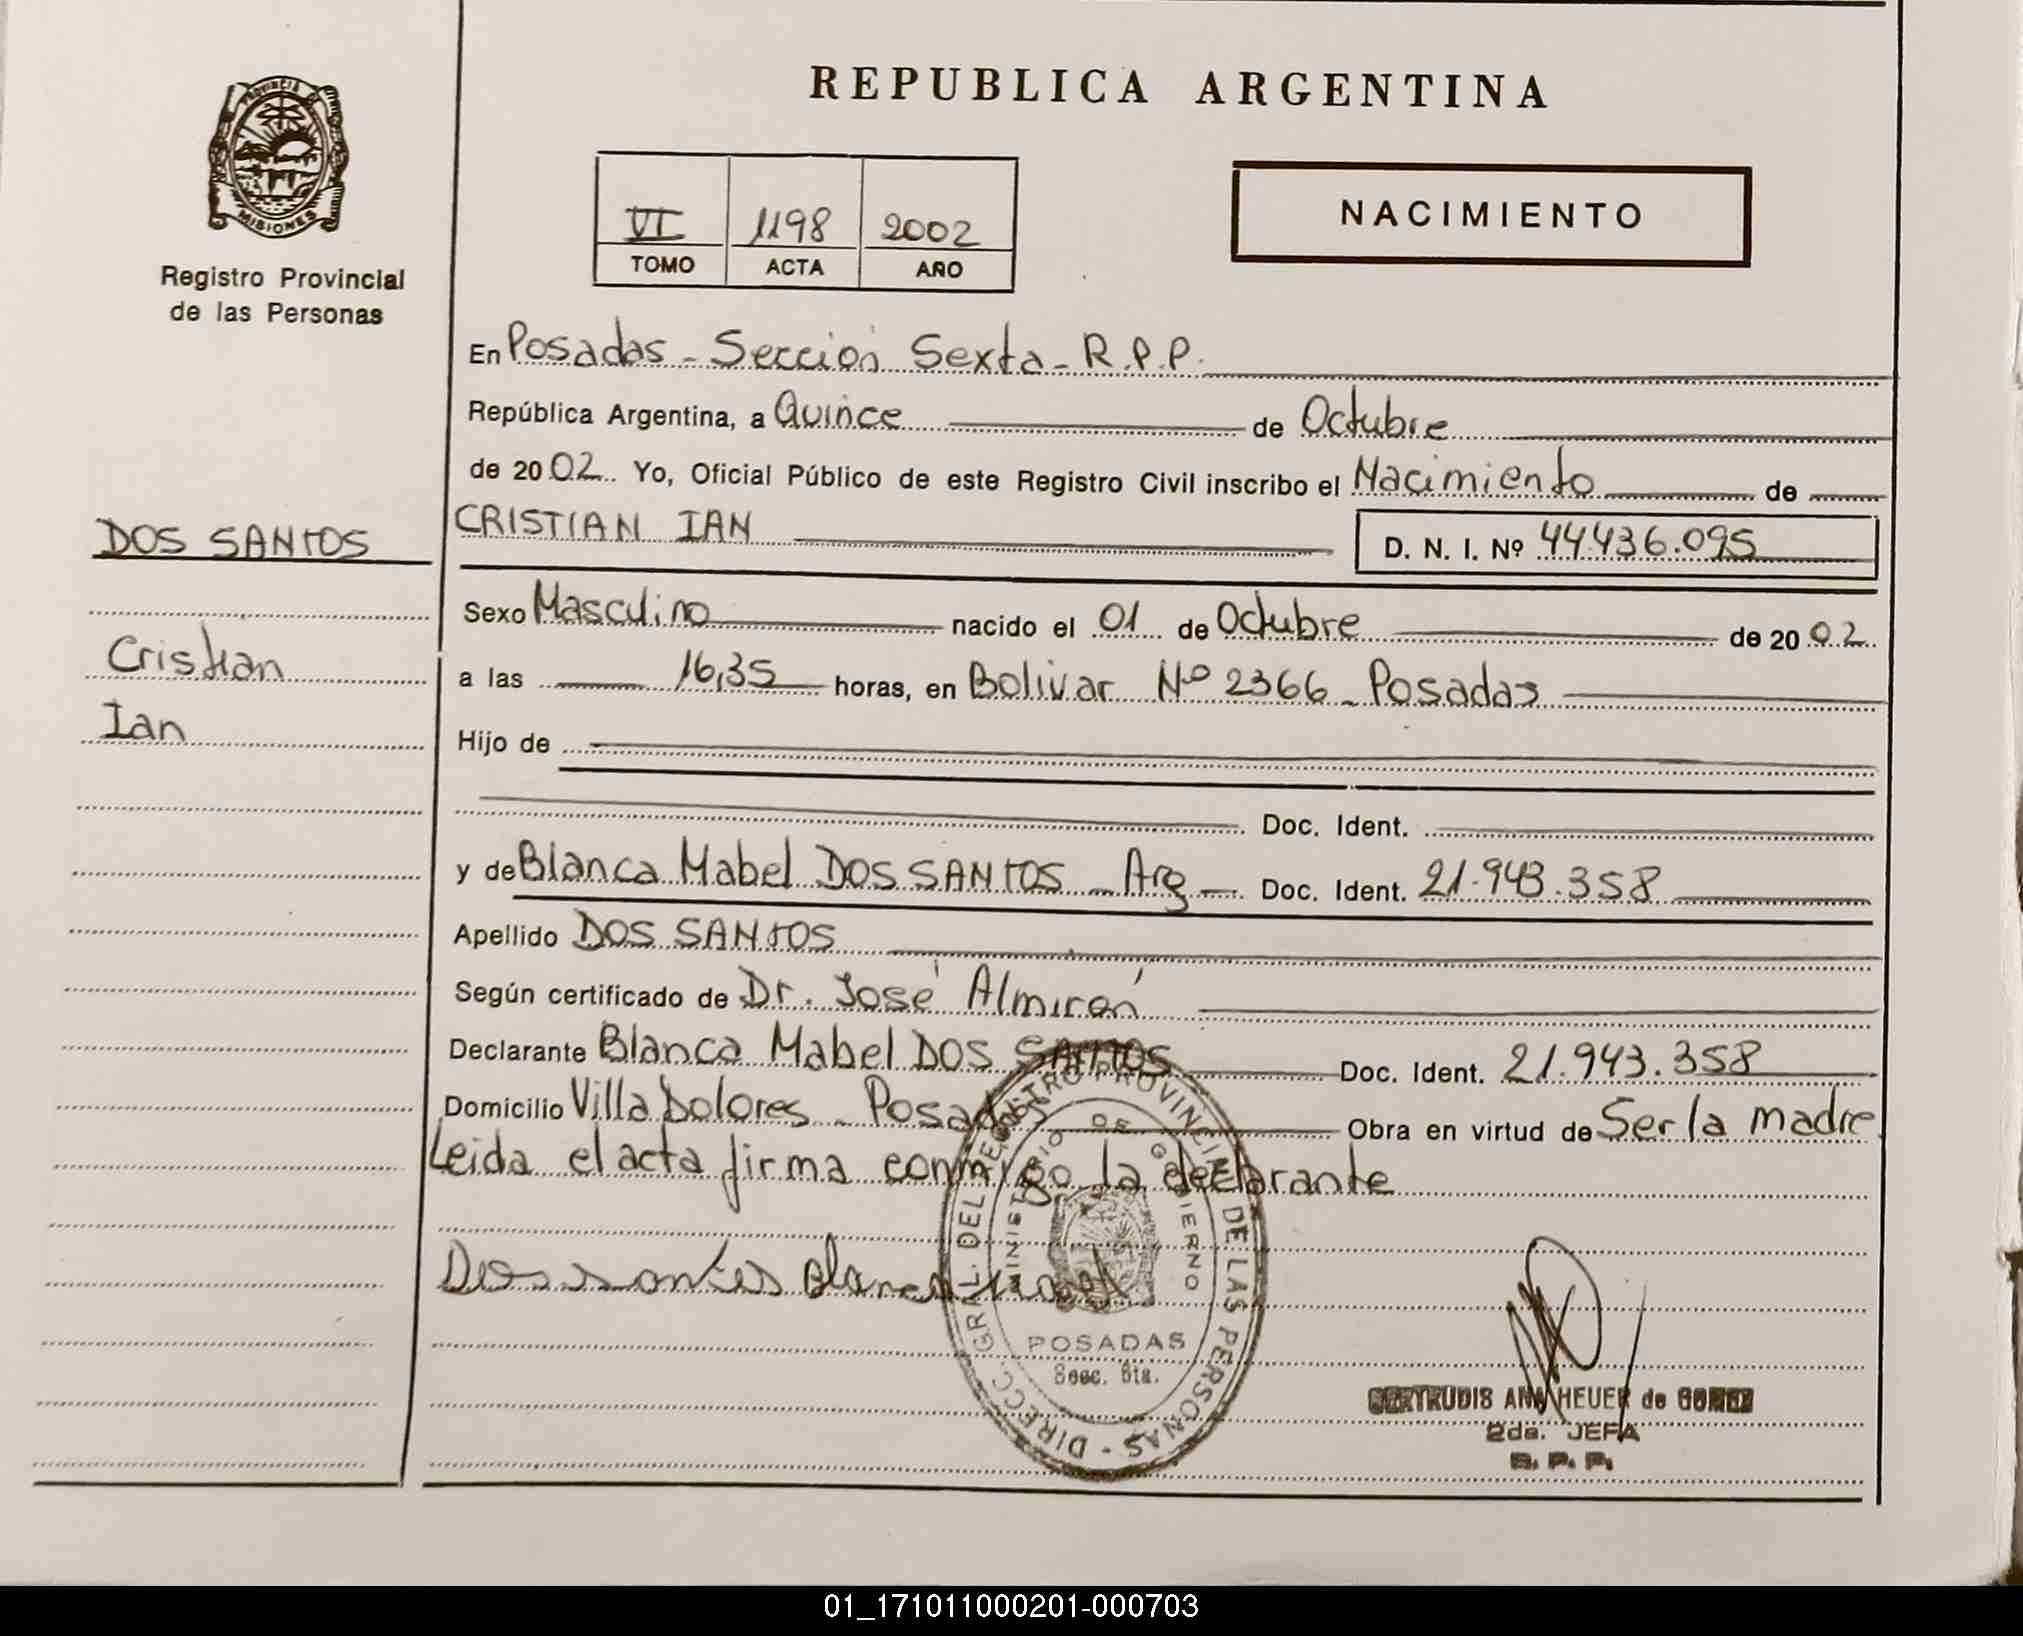 REPUBLICA ARGENTINA
PROVINCIA DE
MISIONES
Registro Provincial
de las Personas
VI 1198 2002
TOMO ACTA AÑO
NACIMIENTO
En Posadas - Sección Sexta - R.P.P.
República Argentina, a Quince de Octubre
de 2002. Yo, Oficial Público de este Registro Civil inscribo el Nacimiento de
DOS SANTOS
CRISTIAN IAN D. N. I. Nº 44.436.095
Sexo Masculino nacido el 01 de Octubre de 2002
Cristian
a las 16,35 horas, en Bolivar Nº 2366 - Posadas
Ian
Hijo de
Doc. Ident.
y de Blanca Mabel DOS SANTOS - Arg - Doc. Ident. 21.943.358
Apellido DOS SANTOS
Según certificado de Dr. José Almirón
Declarante Blanca Mabel DOS SANTOS Doc. Ident. 21.943.358
Domicilio Villa Dolores - Posadas Obra en virtud de Ser la madre
Leida el acta firma conmigo la declarante
Dos santos Blanca Mabel
DIRECC. GRAL. DEL REGISTRO PROVINCIAL DE LAS PERSONAS -
MINISTERIO DE GOBIERNO
POSADAS
Secc. 6ta.
GERTRUDIS ANA HEUER de GOMEZ
2da. JEFA
R. P. P.
01_171011000201-000703